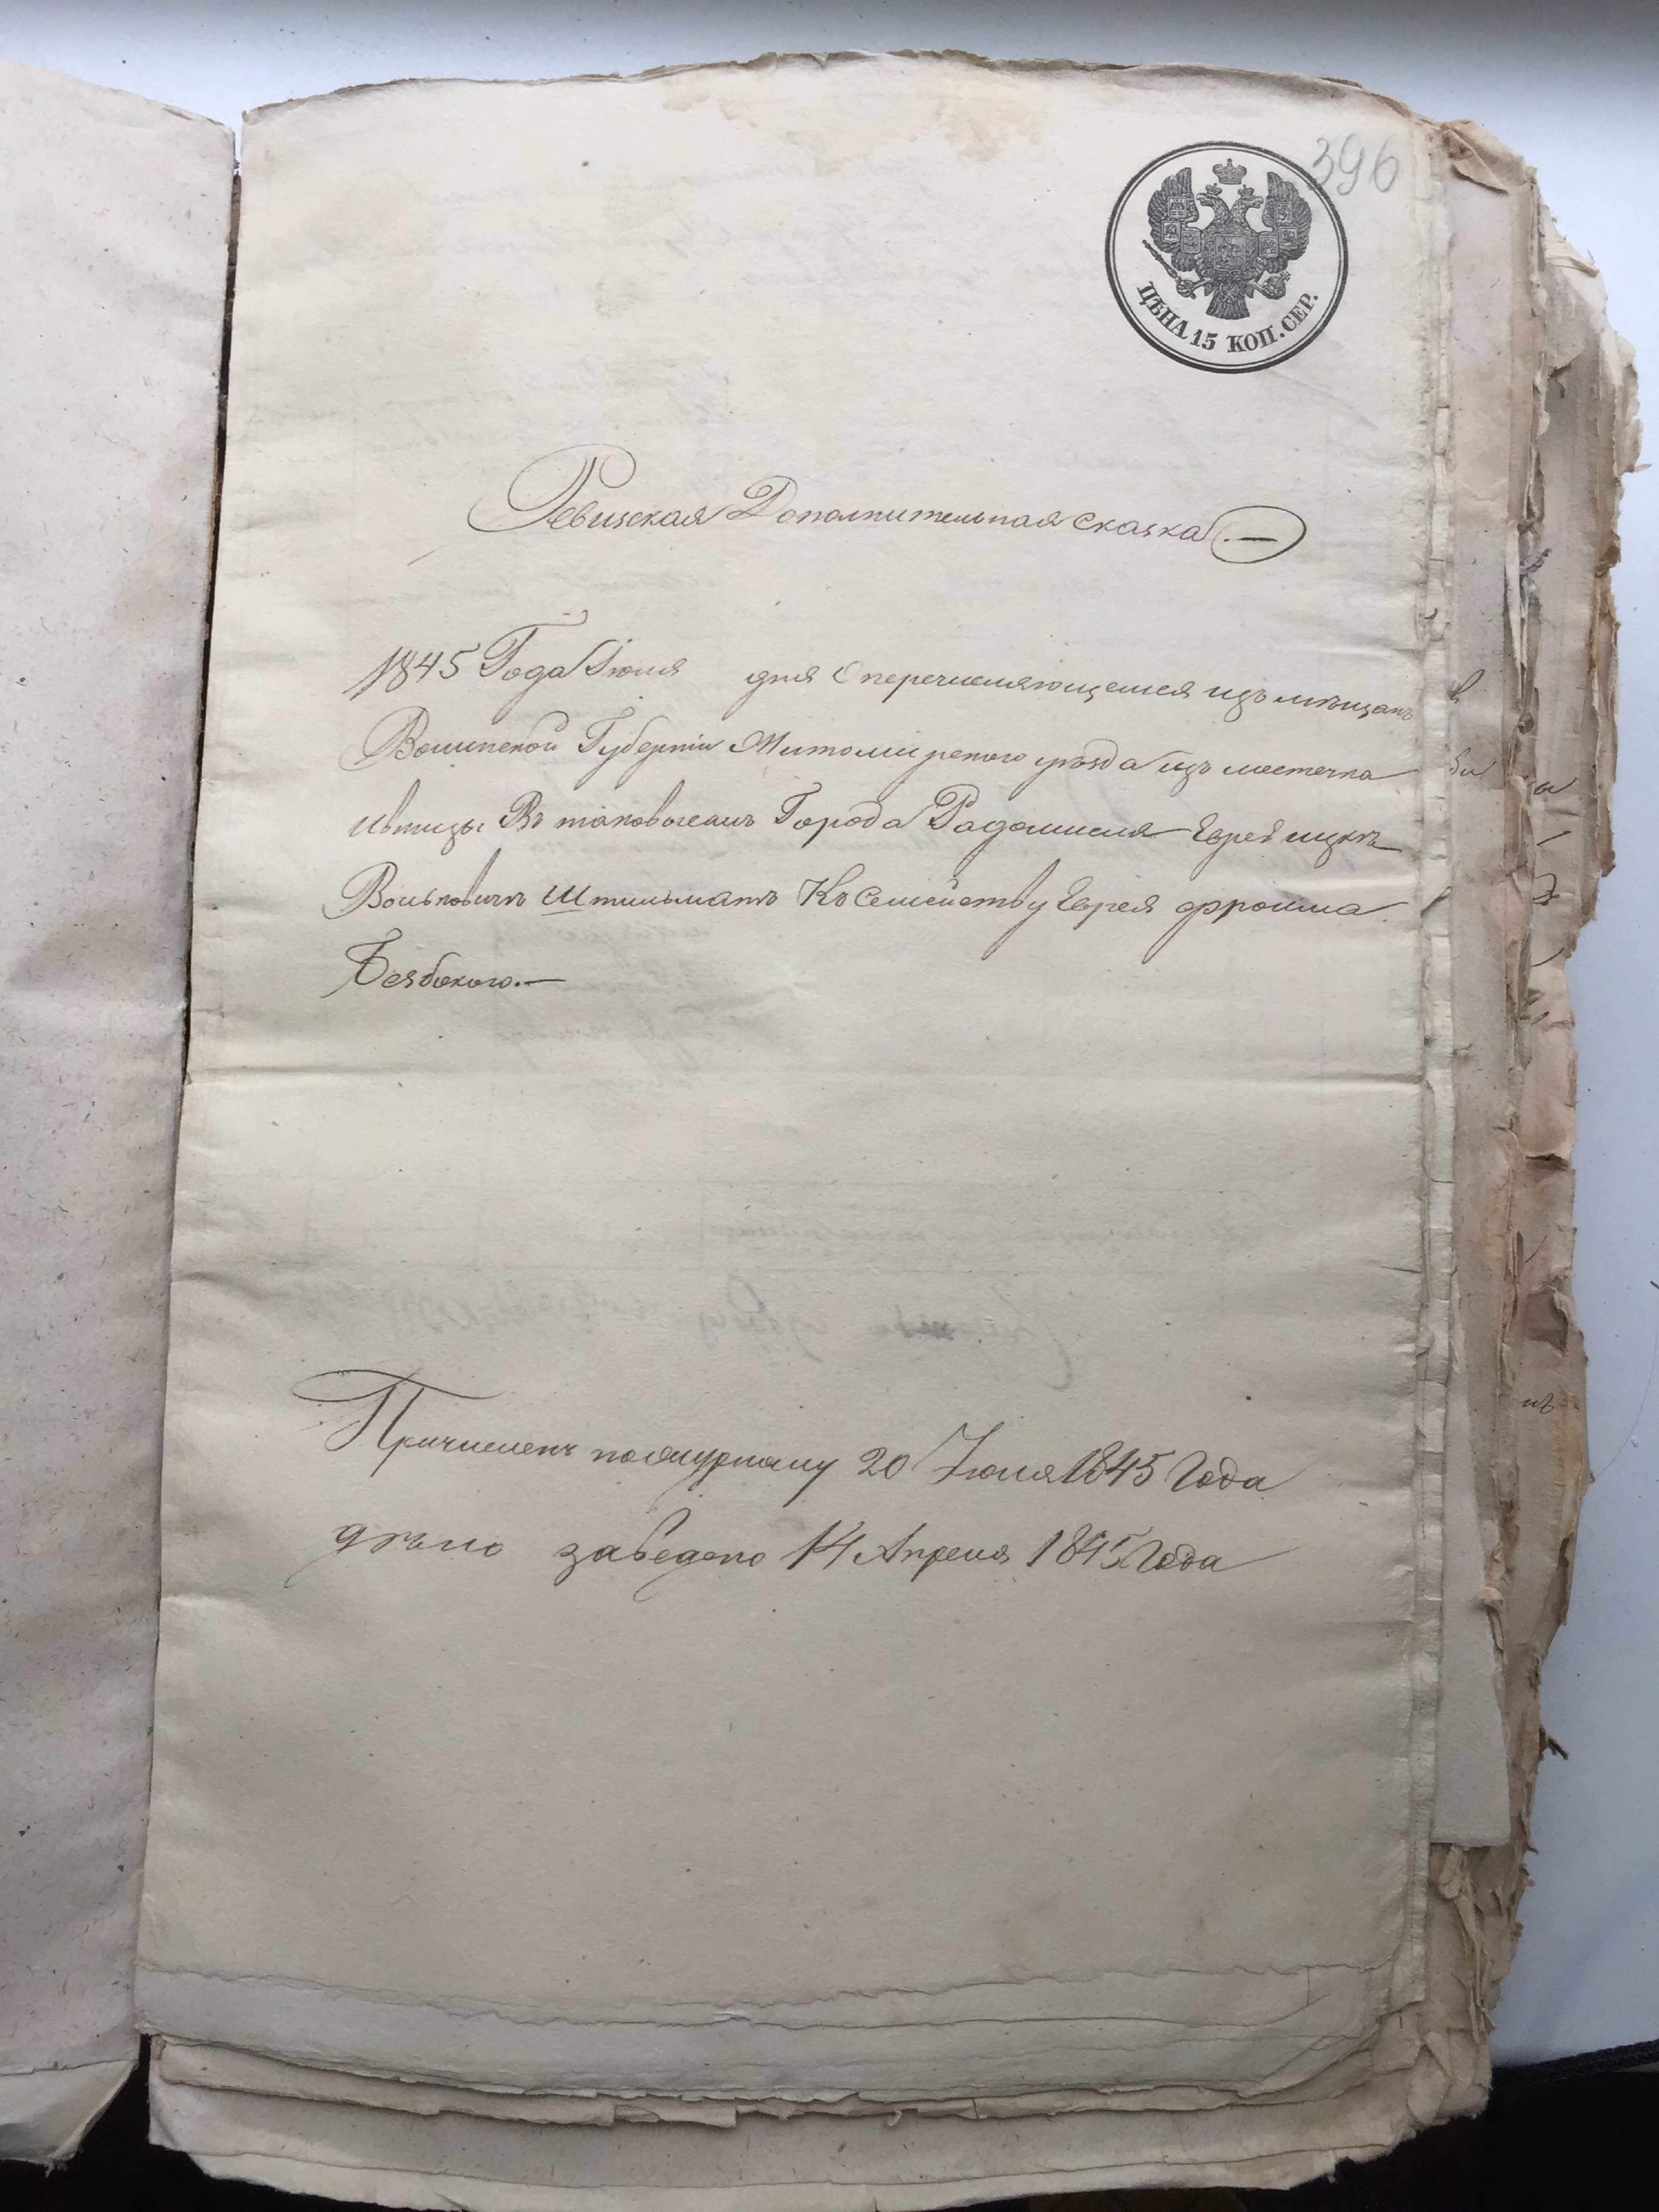 396
ЦѢНА 15 КОП. СЕР.
Ревизская Дополнительная сказка
1845 Года Июля дня О перечисляющемся изъ мѣщанъ
Волынской Губерніи Житомирского уѣзда изъ местечка
Ивницы Въ таковогежъ Города Радомисля Еврей Ицко
Вольковичъ Штильманъ Къ Семейству Еврея Фроима
Безбокого.—
Причисленъ по журналу 20 Июля 1845 Года
дѣло заведено 14 Апреля 1845 Года